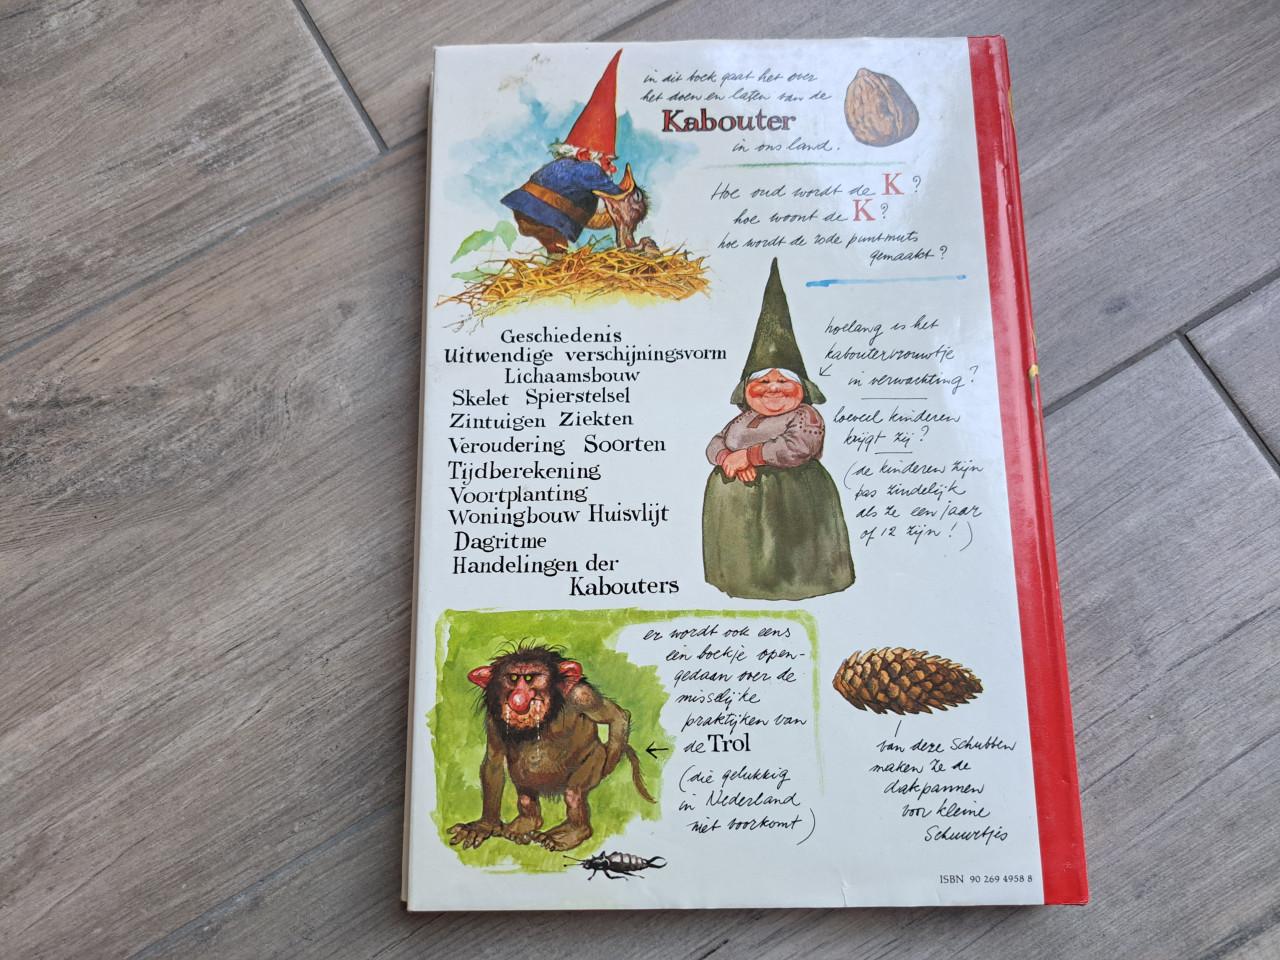 in dit boek gaat het over
het doen en laten van de
Kabouter
in ons land.
Hoe oud wordt de K?
hoe woont de K?
hoe wordt de rode puntmuts
gemaakt?
hoelang is het
kaboutervrouwtje
in verwachting?
hoeveel kinderen
krijgt zij?
(de kinderen zijn
pas zindelijk
als ze een jaar
of 12 zijn!)
Geschiedenis
Uitwendige verschijningsvorm
Lichaamsbouw
Skelet Spierstelsel
Zintuigen Ziekten
Veroudering Soorten
Tijdberekening
Voortplanting
Woningbouw Huisvlijt
Dagritme
Handelingen der
Kabouters
er wordt ook eens
een boekje open-
gedaan over de
misselijke
praktijken van
de Trol
(die gelukkig
in Nederland
niet voorkomt)
van deze schubben
maken ze de
dakpannen
voor kleine
Schuurtjes
ISBN 90 269 4958 8